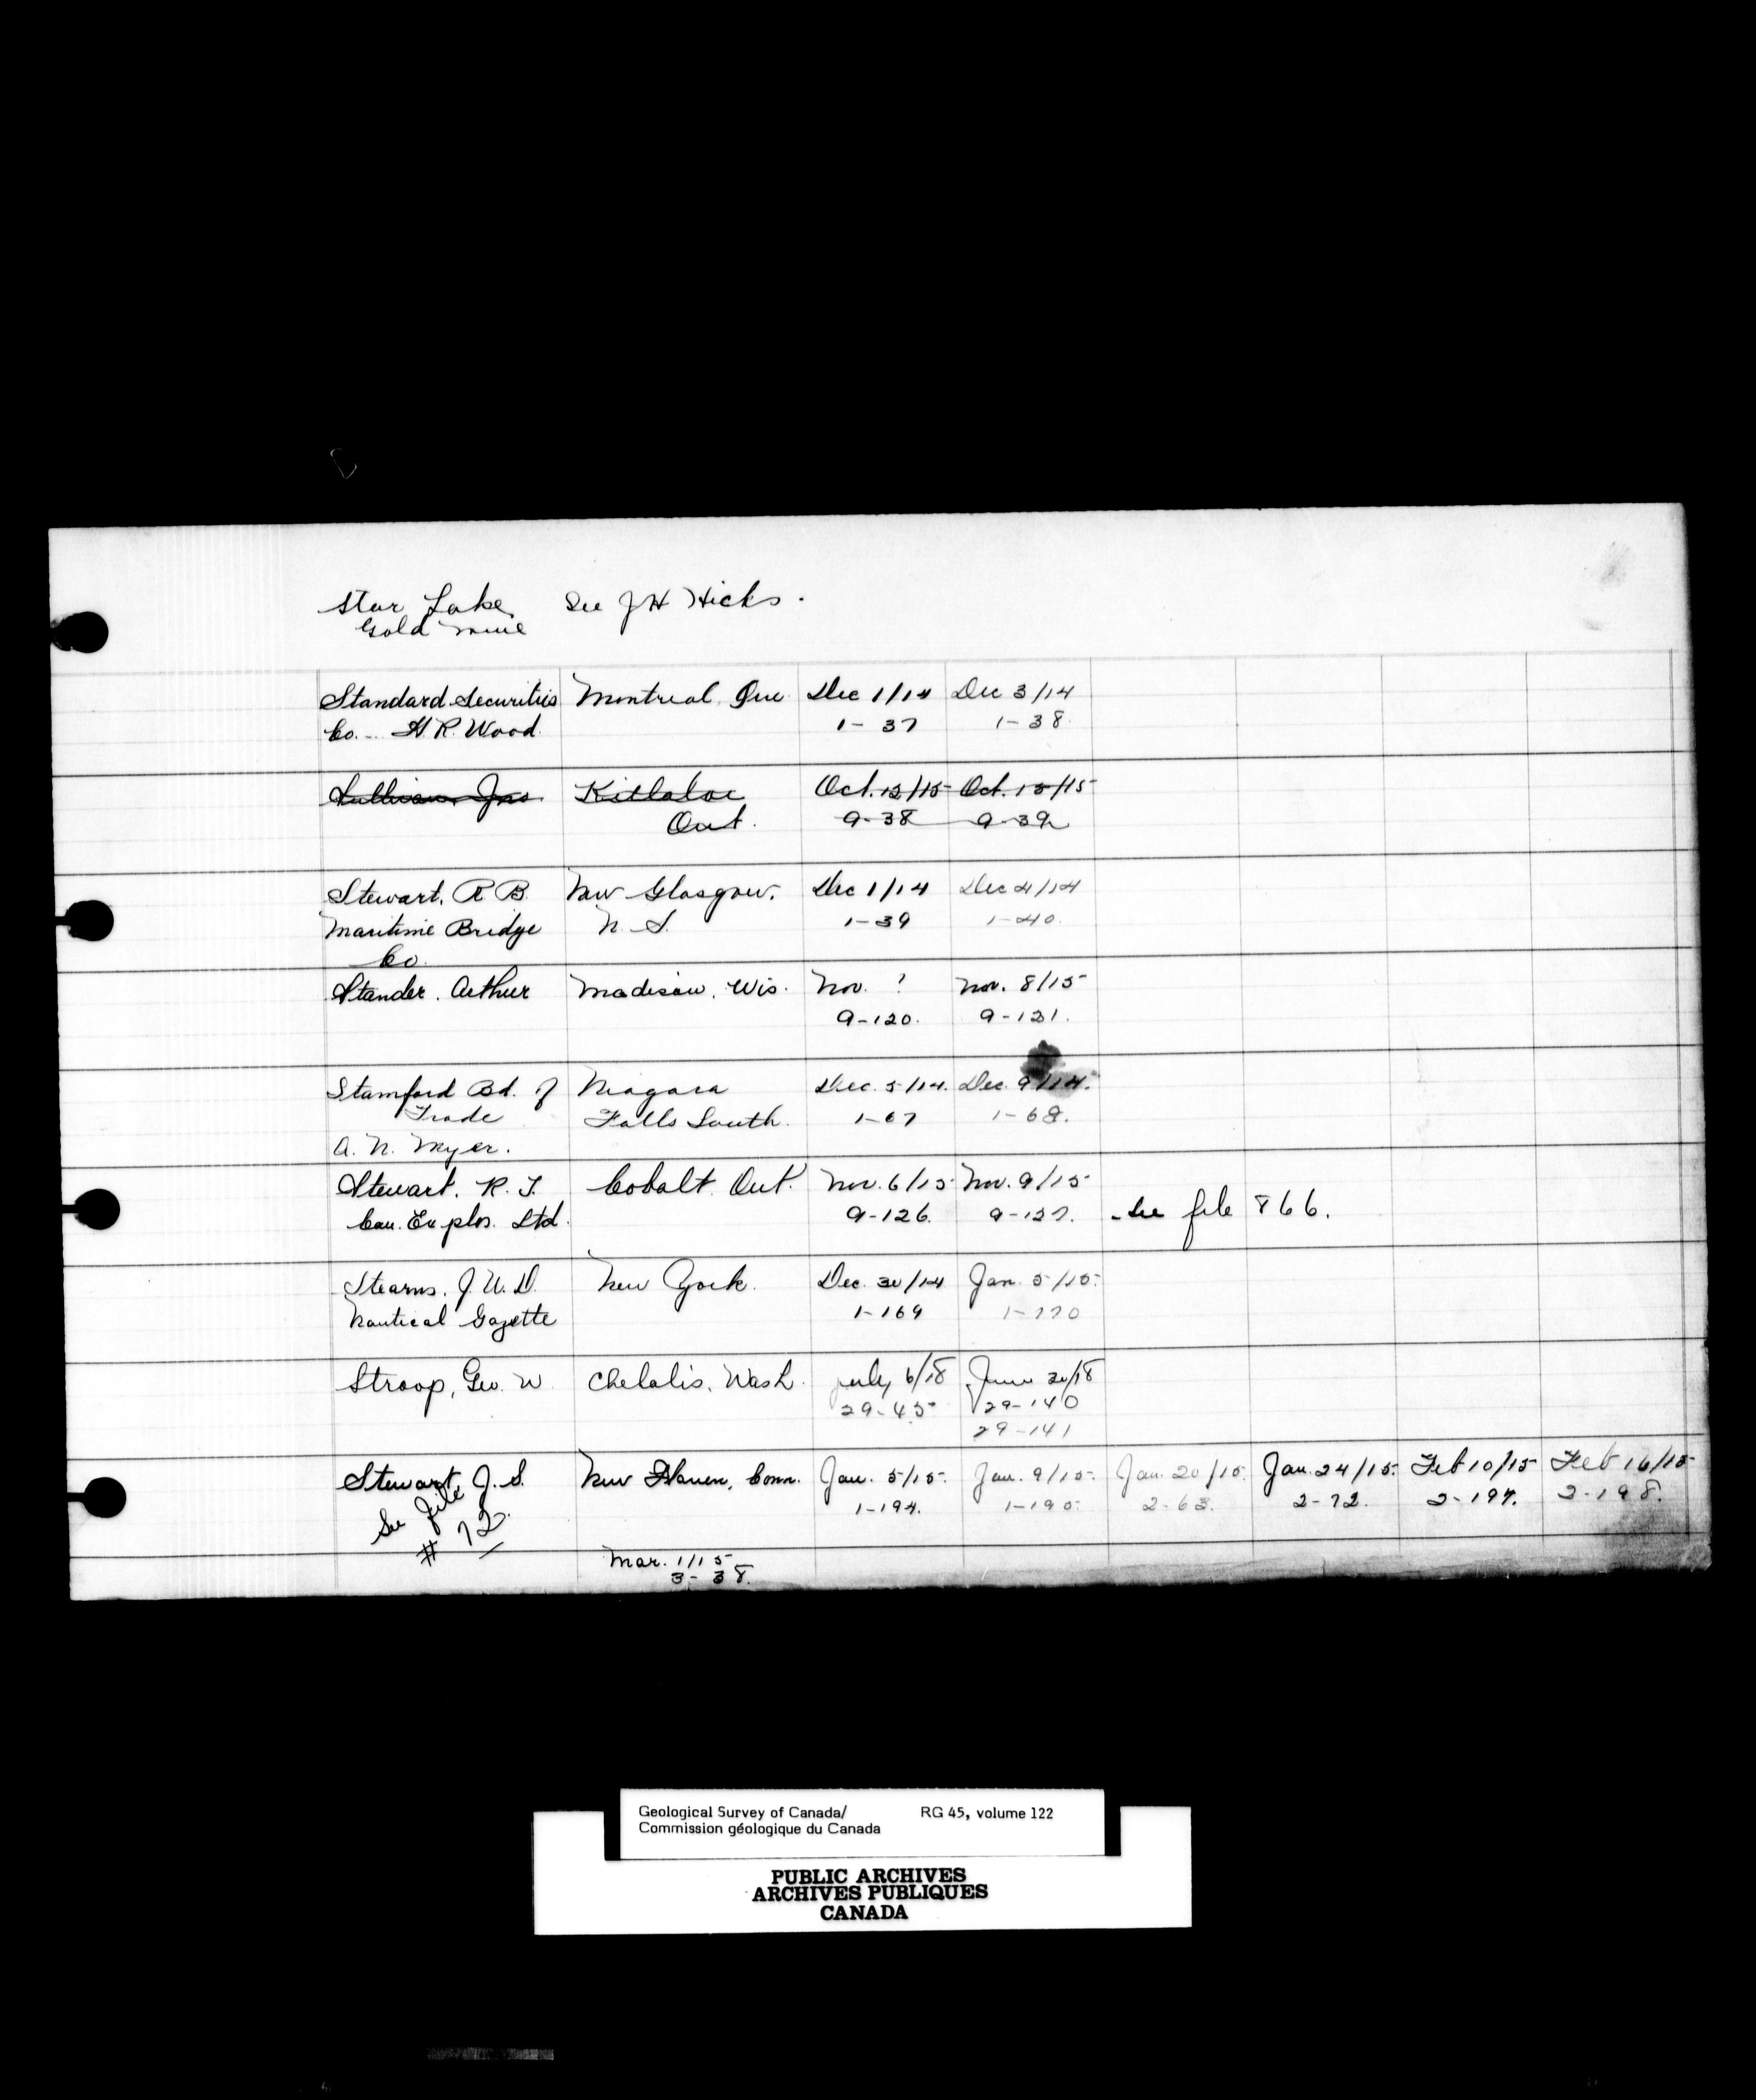 Star Lake See J H Hicks.
Gold mine
Standard Securities Montreal Que Dec 1/14 Dec 3/14
Co. - H. R. Wood. 1-37 1-38.
Sullivan, Jno Killaloe Oct. 12/15 Oct. 15/15
Ont. 9-38 9-39
Stewart, R B. New Glasgow, Dec 1/14 Dec 4/14
Maritime Bridge N. S. 1-39 1-40.
Co.
Stander. Arthur Madison, Wis. Nov. ? Nov. 8/15
9-120. 9-121.
Stamford Bd. of Niagara Dec. 5/14. Dec. 9/14.
Trade Falls South. 1-67 1-68.
A. N. Myer.
Stewart. R. T. Cobalt Ont. Nov. 6/15 Nov. 9/15
Can. Explos. Ltd. 9-126. 9-127. - See file 866.
Stearns. J. U. D. New York. Dec. 30/14 Jan. 5/15.
Nautical Gazette 1-169 1-170
Stroop, Geo. W. Chelalis, Wash. July 6/18
29-45 29-140
29-141
Stewart, J. S. New Haven, Conn. Jan. 5/15. Jan. 9/15. Jan. 20/15. Jan. 24/15. Feb 10/15 Feb 16/15
See file 1-194. 1-195. 2-63. 2-72. 2-197. 2-198.
# 72
Mar. 1/15
3-38.
Geological Survey of Canada/ RG 45, volume 122
Commission géologique du Canada
PUBLIC ARCHIVES
ARCHIVES PUBLIQUES
CANADA